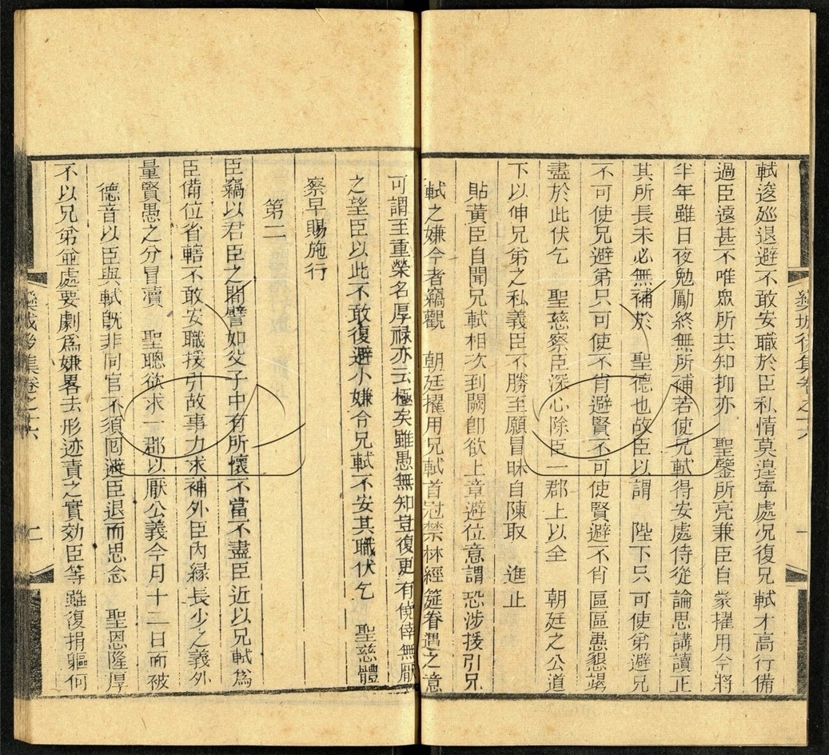 軾逡廵退避不敢安職於臣私情莫遑寧處况復兄軾才高行備
過臣遠甚不唯眾所共知抑亦　聖鑒所亮兼臣自蒙擢用今將
半年雖日夜勉勵終無所補若使兄軾得安處侍從論思講讀正
其所長未必無補於　聖德也故臣以謂　陛下只可使弟避兄
不可使兄避弟只可使不肖避賢不可使賢避不肖區區愚懇竭
盡於此伏乞　聖慈察臣深心除臣一郡上以全　朝廷之公道
下以伸兄弟之私義臣不勝至願冒昧自陳取　進止
貼黃臣自聞兄軾相次到闕卽欲上章避位意謂恐涉援引兄
軾之嫌今者竊觀　朝廷擢用兄軾首冠禁林經筵眷遇之意
可謂至重榮名厚祿亦云極矣雖愚無知豈復更有僥倖無厭
之望臣以此不敢復避小嫌令兄軾不安其職伏乞　聖慈體
察早賜施行
第二
臣竊以君臣之間譬如父子中有所懷不當不盡臣近以兄軾爲
臣備位省轄不敢安職援引故事力求補外臣內緣長少之義外
量賢愚之分冒瀆　聖聰欲求一郡以厭公義今月十二日面被
德音以臣與軾旣非同官不須囘避臣退而思念　聖恩隆厚
不以兄弟並處要劇爲嫌畧去形迹責之實効臣等雖復捐軀何
欒城後集卷之十六
一
欒城後集卷之十六
二